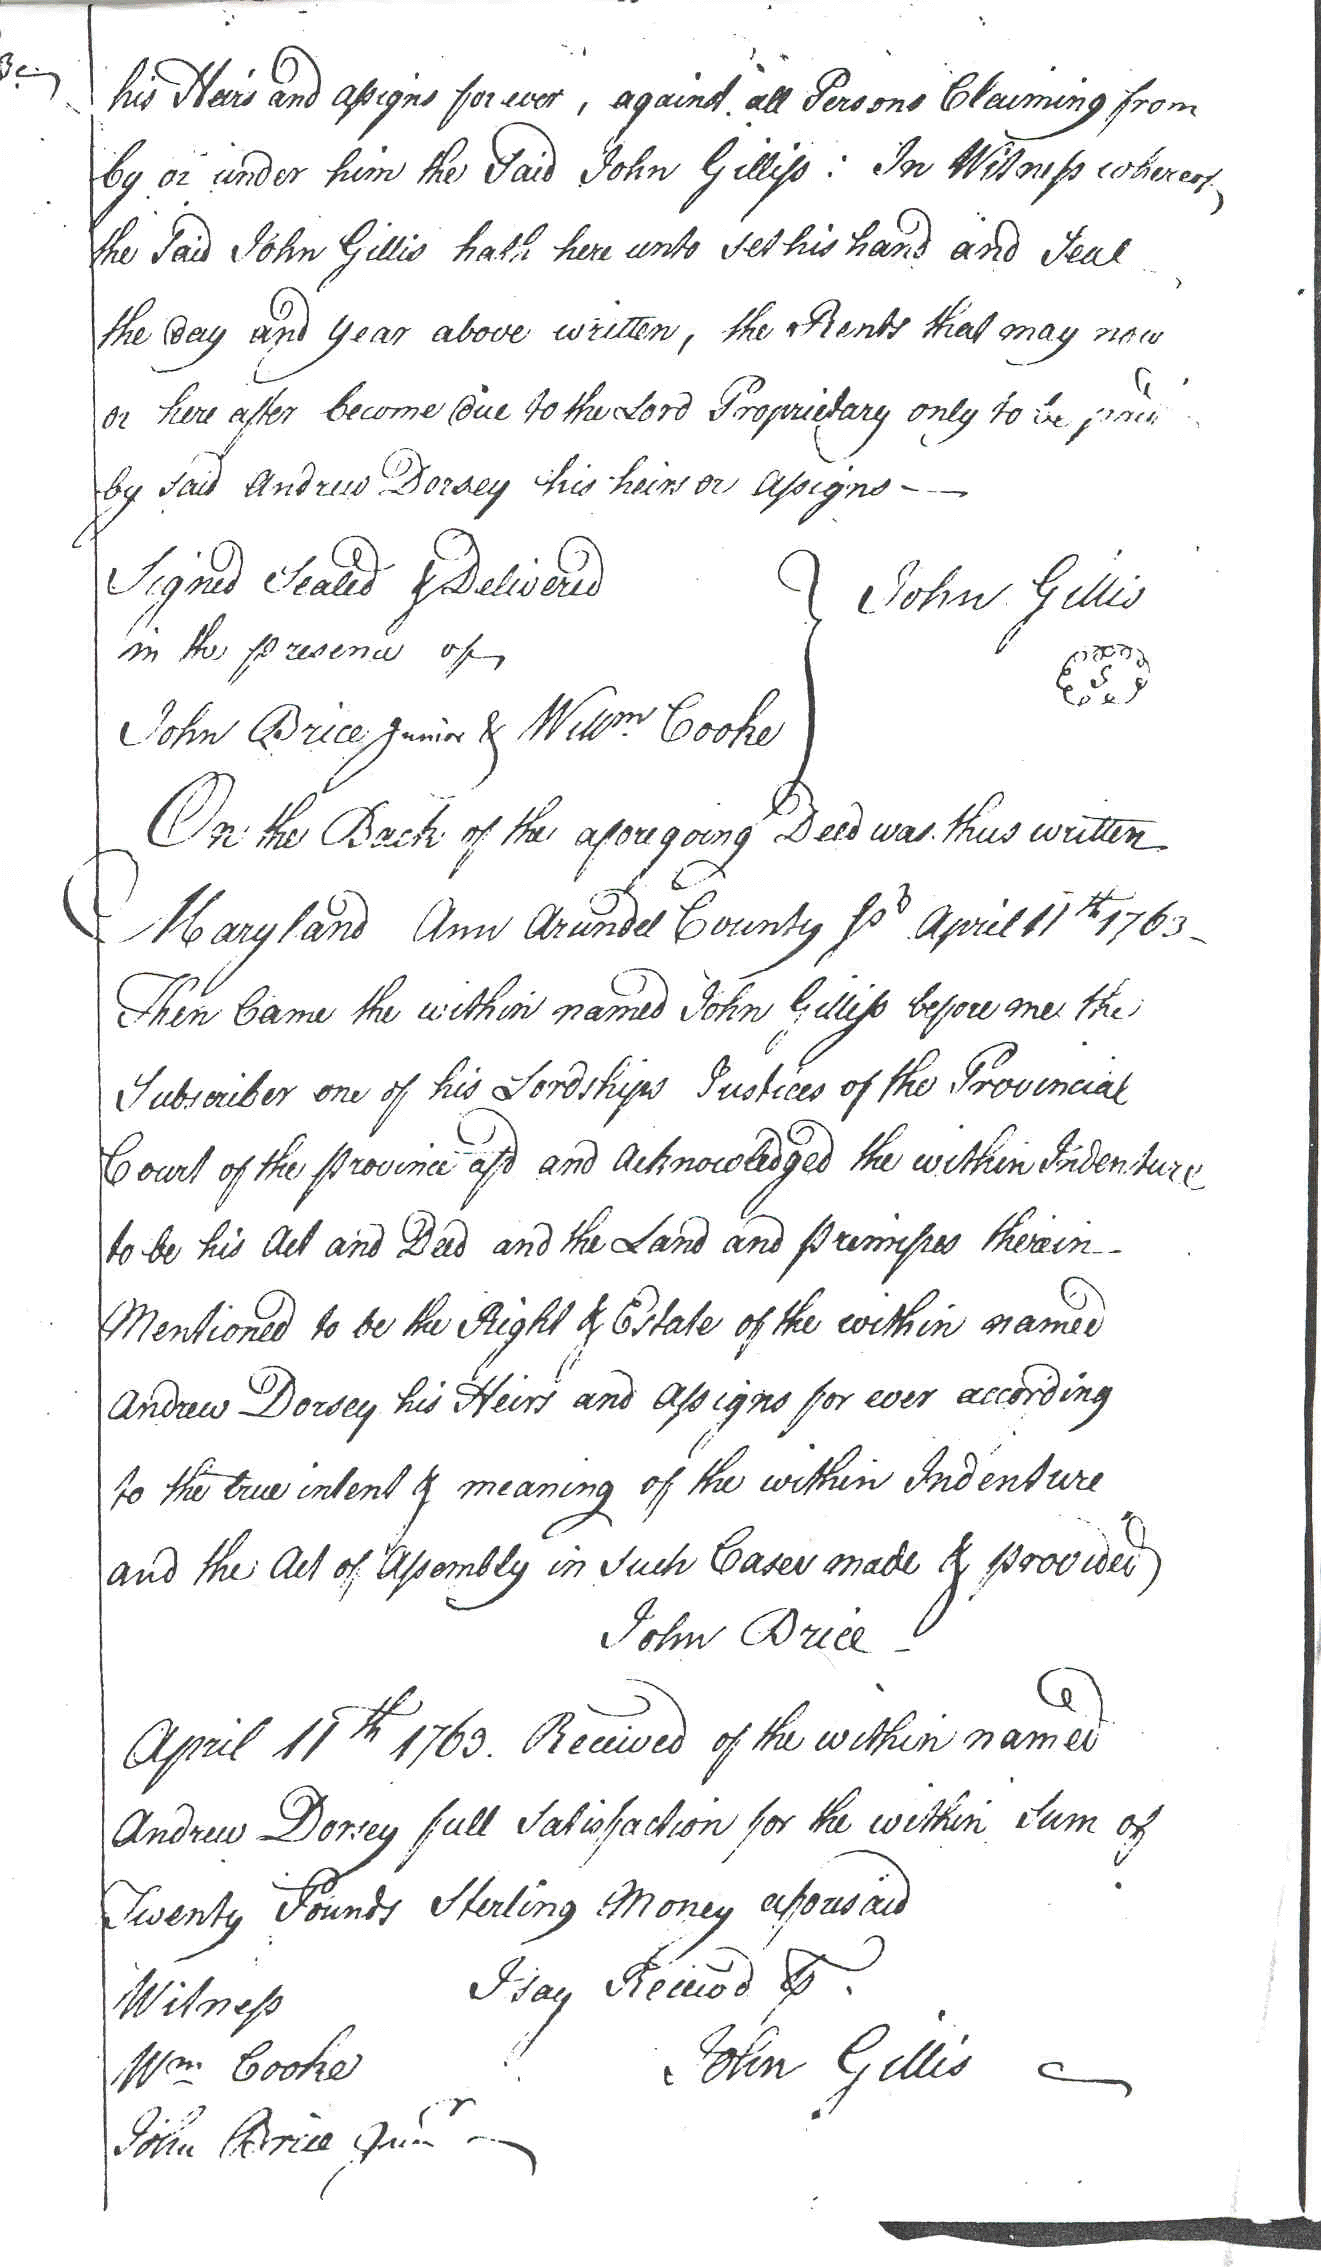 his Heirs and assigns for ever, against all Persons Claiming from
by or under him the Said John Gilliss: In Witness whereof
the Said John Gillis hath here unto set his hand and Seal
the day and year above written, the Rents that may now
or here after become due to the Lord Proprietary only to be paid
by said Andrew Dorsey his heirs or assigns
Signed Sealed & Delivered
in the presence of
John Gillis
S
John Brice Junior & Willm. Cooke
On the Back of the aforegoing Deed was thus written
Maryland Ann Arundel County April 11th 1763
Then Came the within named John Gilliss before me the
Subscriber one of his Lordships Justices of the Provincial
Court of the province afsd and Acknowledged the within Indenture
to be his Act and Deed and the Land and premisses therein
Mentioned to be the Right & Estate of the within named
Andrew Dorsey his Heirs and Assigns for ever according
to the true intent & meaning of the within Indenture
and the Act of Assembly in such Cases made & provided
John Brice
April 11th 1763. Received of the within named
Andrew Dorsey full Satisfaction for the within Sum of
Twenty Pounds Sterling Money aforesaid
Witness I say Receivd
Wm Cooke John Gillis
John Brice Junr